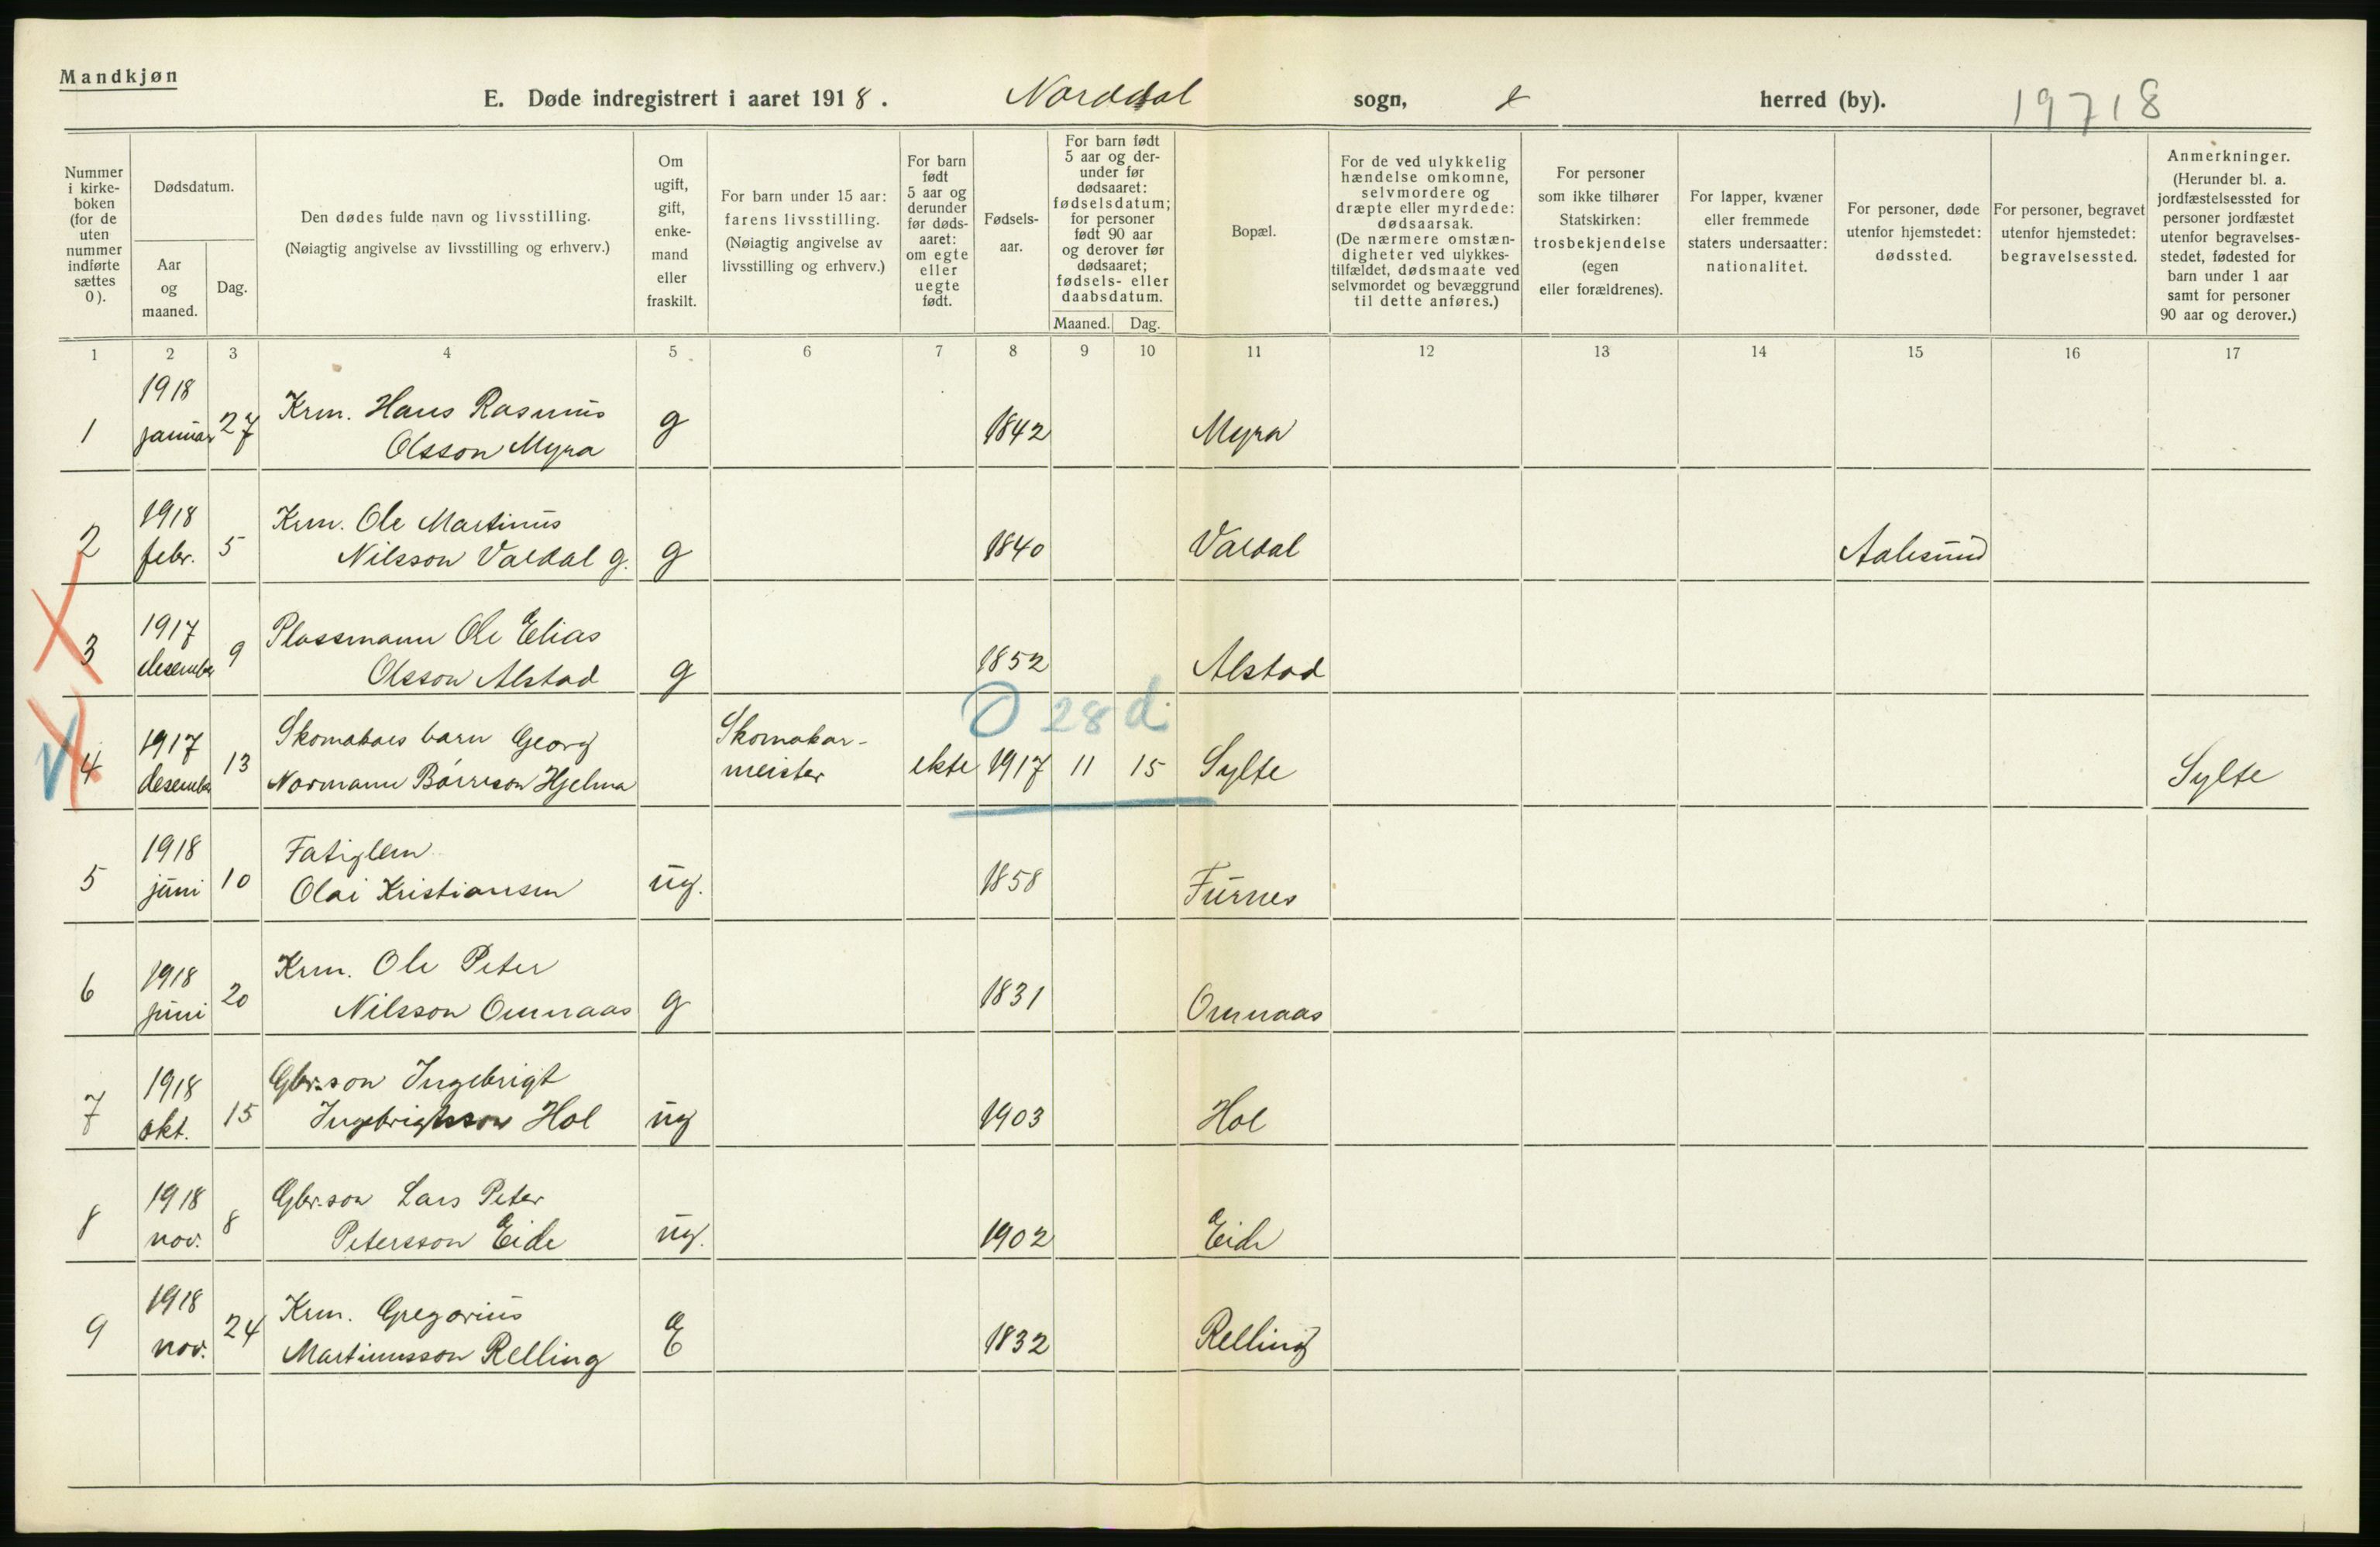 Mandkjøn
E. Døde indregistrert i aaret 1918. Norddal sogn, herred (by). 19718
Nummer i kirke- boken (for de uten nummer indførte sættes 0).
Dødsdatum.
Aar og maaned.
Dag.
Den dødes fulde navn og livsstilling.
(Nøiagtig angivelse av livsstilling og erhverv.)
Om ugift, gift, enke- mand eller fraskilt.
For barn under 15 aar: farens livsstilling. (Nøiagtig angivelse av livsstilling og erhverv.)
For barn født 5 aar og derunder før døds- aaret: om egte eller uegte født.
Fødsels- aar.
For barn født 5 aar og der- under før dødsaaret: fødselsdatum; for personer født 90 aar og derover før dødsaaret; fødsels- eller daabsdatum.
Maaned. Dag.
Bopæl.
For de ved ulykkelig hændelse omkomne, selvmordere og dræpte eller myrdede: dødsaarsak. (De nærmere omstæn- digheter ved ulykkes- tilfældet, dødsmaate ved selvmordet og bevæggrund til dette anføres.)
For personer som ikke tilhører Statskirken: trosbekjendelse (egen eller forældrenes).
For lapper, kvæner eller fremmede staters undersaatter: nationalitet.
For personer, døde utenfor hjemstedet: dødssted.
For personer, begravet utenfor hjemstedet: begravelsessted.
Anmerkninger. (Herunder bl. a. jordfæstelsessted for personer jordfæstet utenfor begravelses- stedet, fødested for barn under 1 aar samt for personer 90 aar og derover.)
1 2 3 4 5 6 7 8 9 10 11 12 13 14 15 16 17
1918 Krm. Hans Rasmus
1 januar 27 Olsson Myra g 1842 Myra
1918 Krm. Ole Martinus
2 febr. 5 Nilsson Valdal g. g 1840 Valdal Aalesund
1917 Plassmann Ole Elias
3 desember 9 Olsson Alstad g 1852 Alstad
0 28 d.
1917 Skomakars barn Georg Skomakar-
4 desember 13 Normann Børreson Hjelma meister ekte 1917 11 15 Sylte Sylte
1918 Fatiglem
5 juni 10 Olai Kristiansen ug. 1858 Furnes
1918 Krm. Ole Peter
6 juni 20 Nilsson Omnaas g 1831 Omnaas
1918 Gbr.son Ingebrigt
7 okt. 15 Ingebrigtsson Hol ug 1903 Hol
1918 Gbr.son Lars Peter
8 nov. 8 Petersson Eide ug. 1902 Eide
1918 Krm. Gregorius
9 nov. 24 Martinusson Relling E 1832 Relling